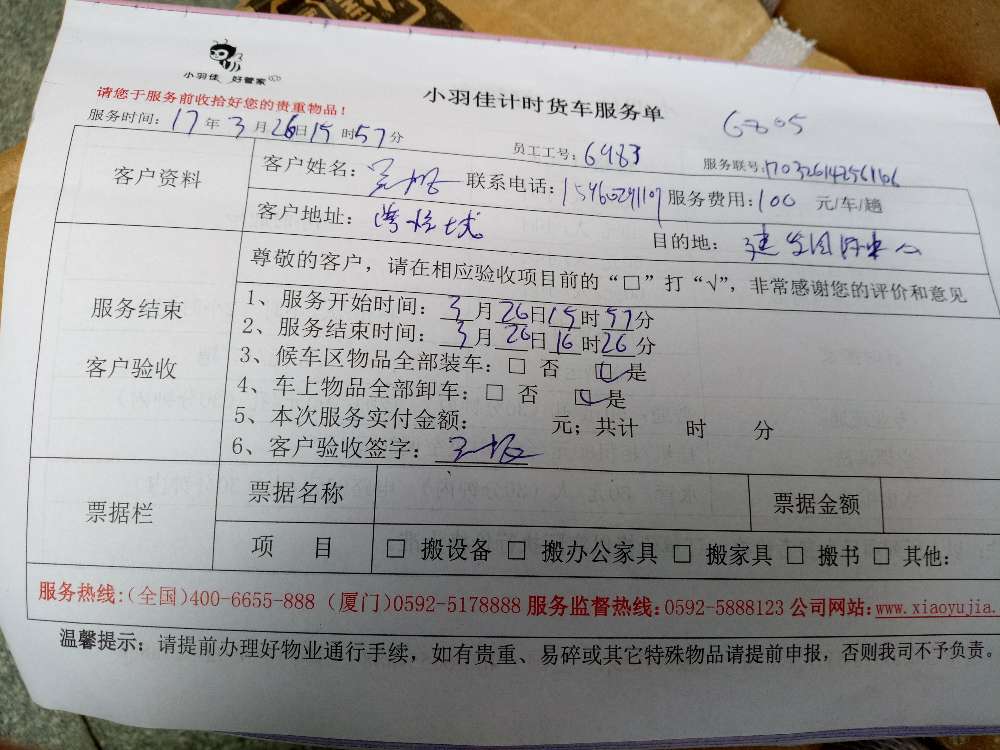 小羽佳 好管家
请您于服务前收拾好您的贵重物品！
小羽佳计时货车服务单
6805
服务时间：17年3月26日15时57分
员工工号：6483
服务联号：
客户资料
客户姓名：
联系电话：
服务费用：100 元/车/趟
客户地址：
目的地：
服务结束
客户验收
尊敬的客户，请在相应验收项目前的“□”打“√”，非常感谢您的评价和意见
1、服务开始时间：3月26日15时57分
2、服务结束时间：3月26日16时26分
3、候车区物品全部装车：□ 否 ☑是
4、车上物品全部卸车：□ 否 ☑是
5、本次服务实付金额： 元；共计 时 分
6、客户验收签字：
票据栏
票据名称
票据金额
项 目
□ 搬设备 □ 搬办公家具 □ 搬家具 □ 搬书 □ 其他：
服务热线：(全国)400-6655-888 (厦门)0592-5178888 服务监督热线：0592-5888123 公司网站：www.xiaoyujia.
温馨提示：请提前办理好物业通行手续，如有贵重、易碎或其它特殊物品请提前申报，否则我司不予负责。